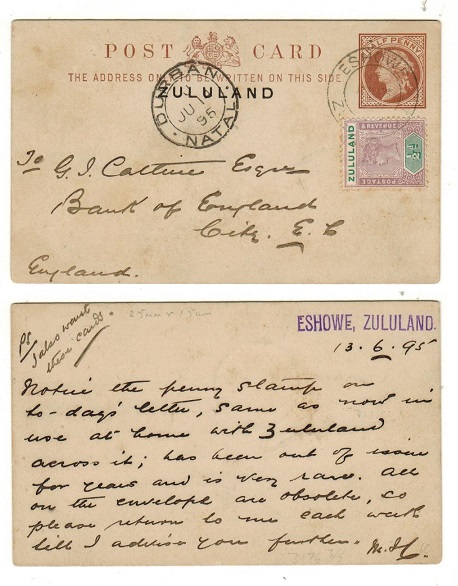 POST CARD
HALFPENNY
THE ADDRESS ONLY TO BE WRITTEN ON THIS SIDE
ZULULAND
DURBAN
JU 1
95
NATAL
ESHOWE
ZULULAND
POSTAGE
& REVENUE
½d
To G. J. Esqre
Bank of England
City. E. C
England.
Ps/
I also want
these cards.
ESHOWE, ZULULAND.
13.6.95
Notice the penny stamp on
to-day's letter, same as now in
use at home with Zululand
across it; has been out of issue
for years and is very rare. All
on the envelope are obsolete, so
please return to me each with
till I advise you further.